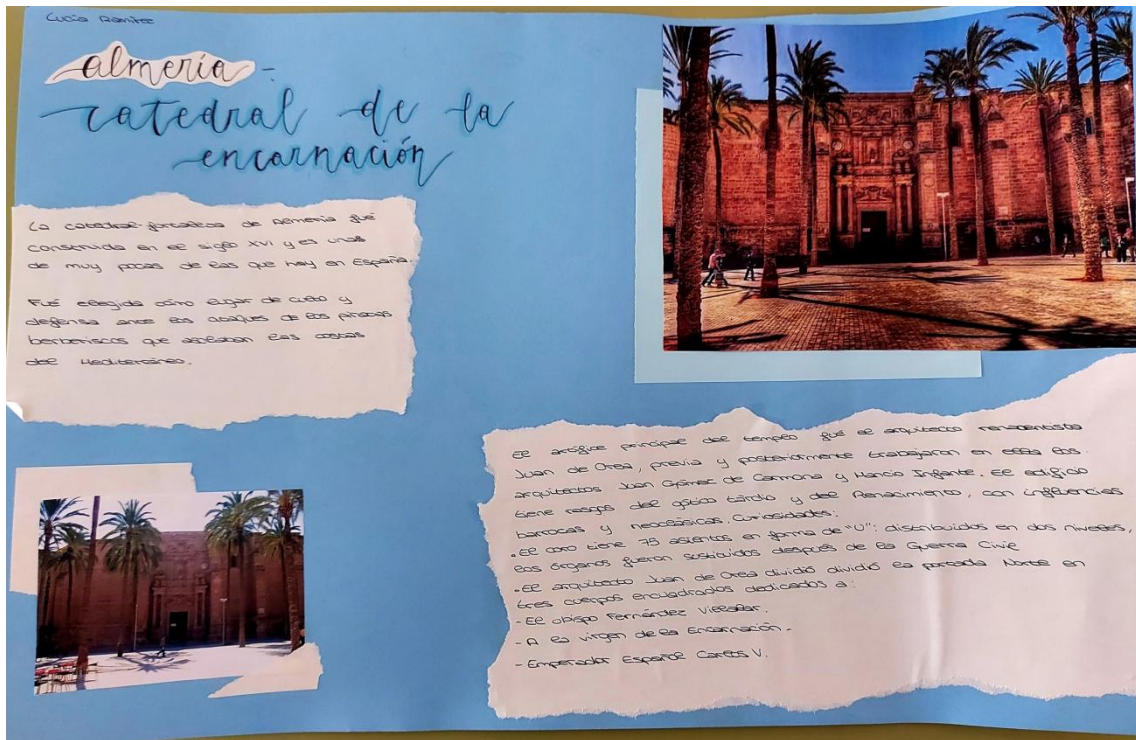 Lucía Ramírez
almería -
catedral de la
encarnación
La catedral-fortaleza de Almería fué
construida en el siglo XVI y es unas
de muy pocas de las que hay en España.
Fué elegida cómo lugar de culto y
defensa ante los ataques de los piratas
berberiscos que asolaban las costas
del Mediterráneo.
El artífice principal del templo fué el arquitecto renacentista
Juan de Orea, previa y posteriormente trabajaron en ella los
arquitectos Juan Gómez de Carmona y Mancio Infante. El edificio
tiene rasgos del gótico tardío y del Renacimiento, con influencias
barrocas y neoclásicas. Curiosidades:
• El coro tiene 75 asientos en forma de "U": distribuidos en dos niveles,
los órganos fueron sustituidos después de la Guerra Civil
• El arquitecto Juan de Orea dividió dividió la portada Norte en
tres cuerpos encuadrados dedicados a:
- El obispo Fernández Villalar.
- A la virgen de la Encarnación.
- Emperador Español Carlos V.